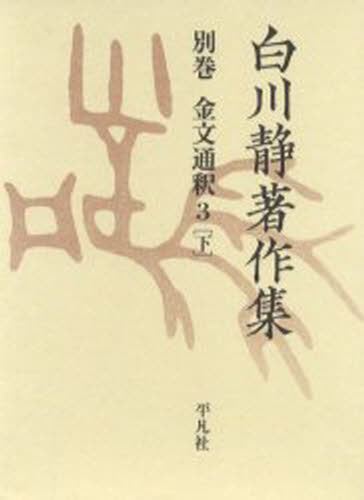 白川静著作集
別巻 金文通釈 3［下］
平凡社